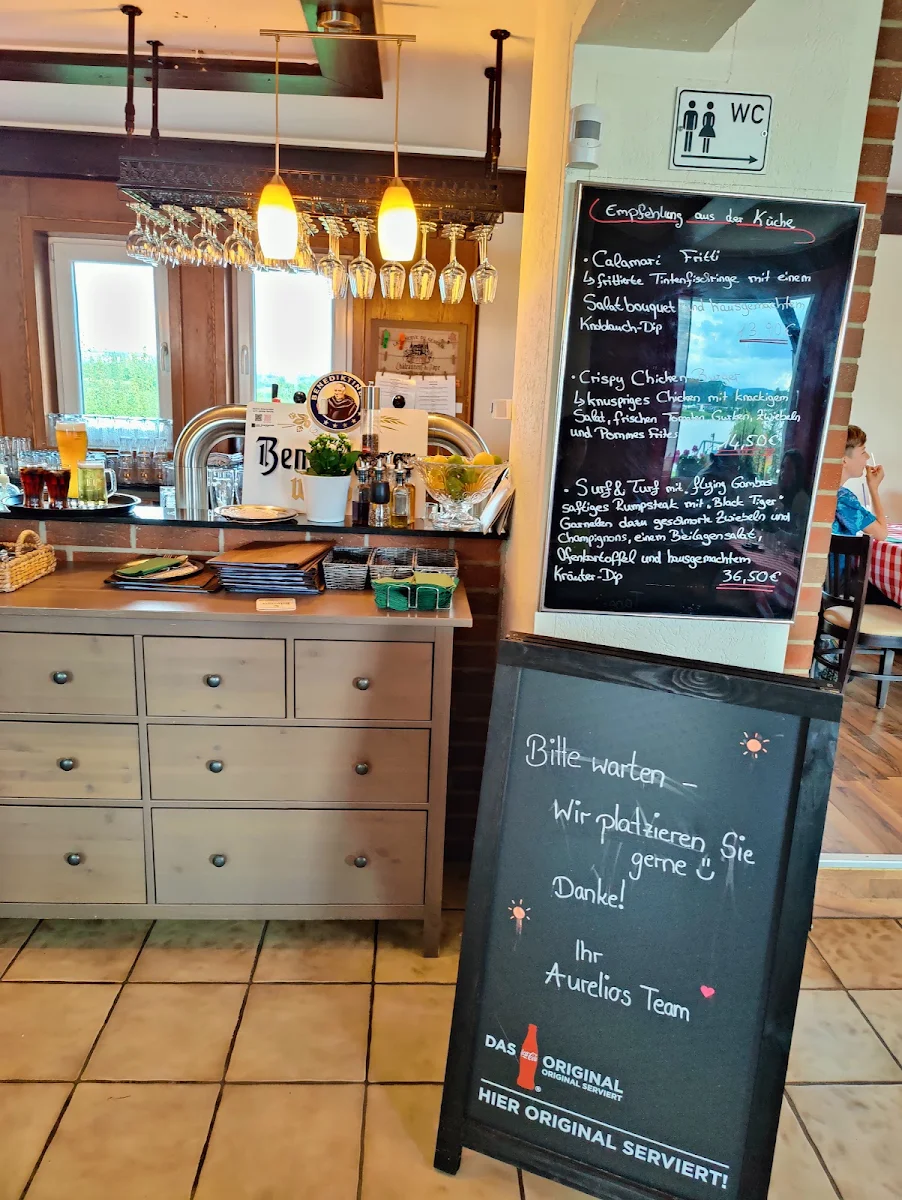 WC
Empfehlung aus der Küche
· Calamari Fritti
↳ frittierte Tintenfischringe mit einem
Salatbouquet und hausgemachtem
Knoblauch-Dip
· Crispy Chicken Burger
↳ knuspriges Chicken mit knackigem
Salat, frischen Tomaten, Gurken, Zwiebeln
und Pommes Frites
4,50€
· Surf & Turf mit "flying Gambas"
saftiges Rumpsteak mit "Black Tiger"
Garnelen dazu geschmorte Zwiebeln und
Champignons, einem Beilagensalat,
Ofenkartoffel und hausgemachtem
Kräuter-Dip
36,50€
BENEDIKTINER
Ben
Bitte warten –
Wir platzieren Sie
gerne
Danke!
Ihr
Aurelios Team
DAS Coca-Cola ORIGINAL
ORIGINAL SERVIERT
HIER ORIGINAL SERVIERT!